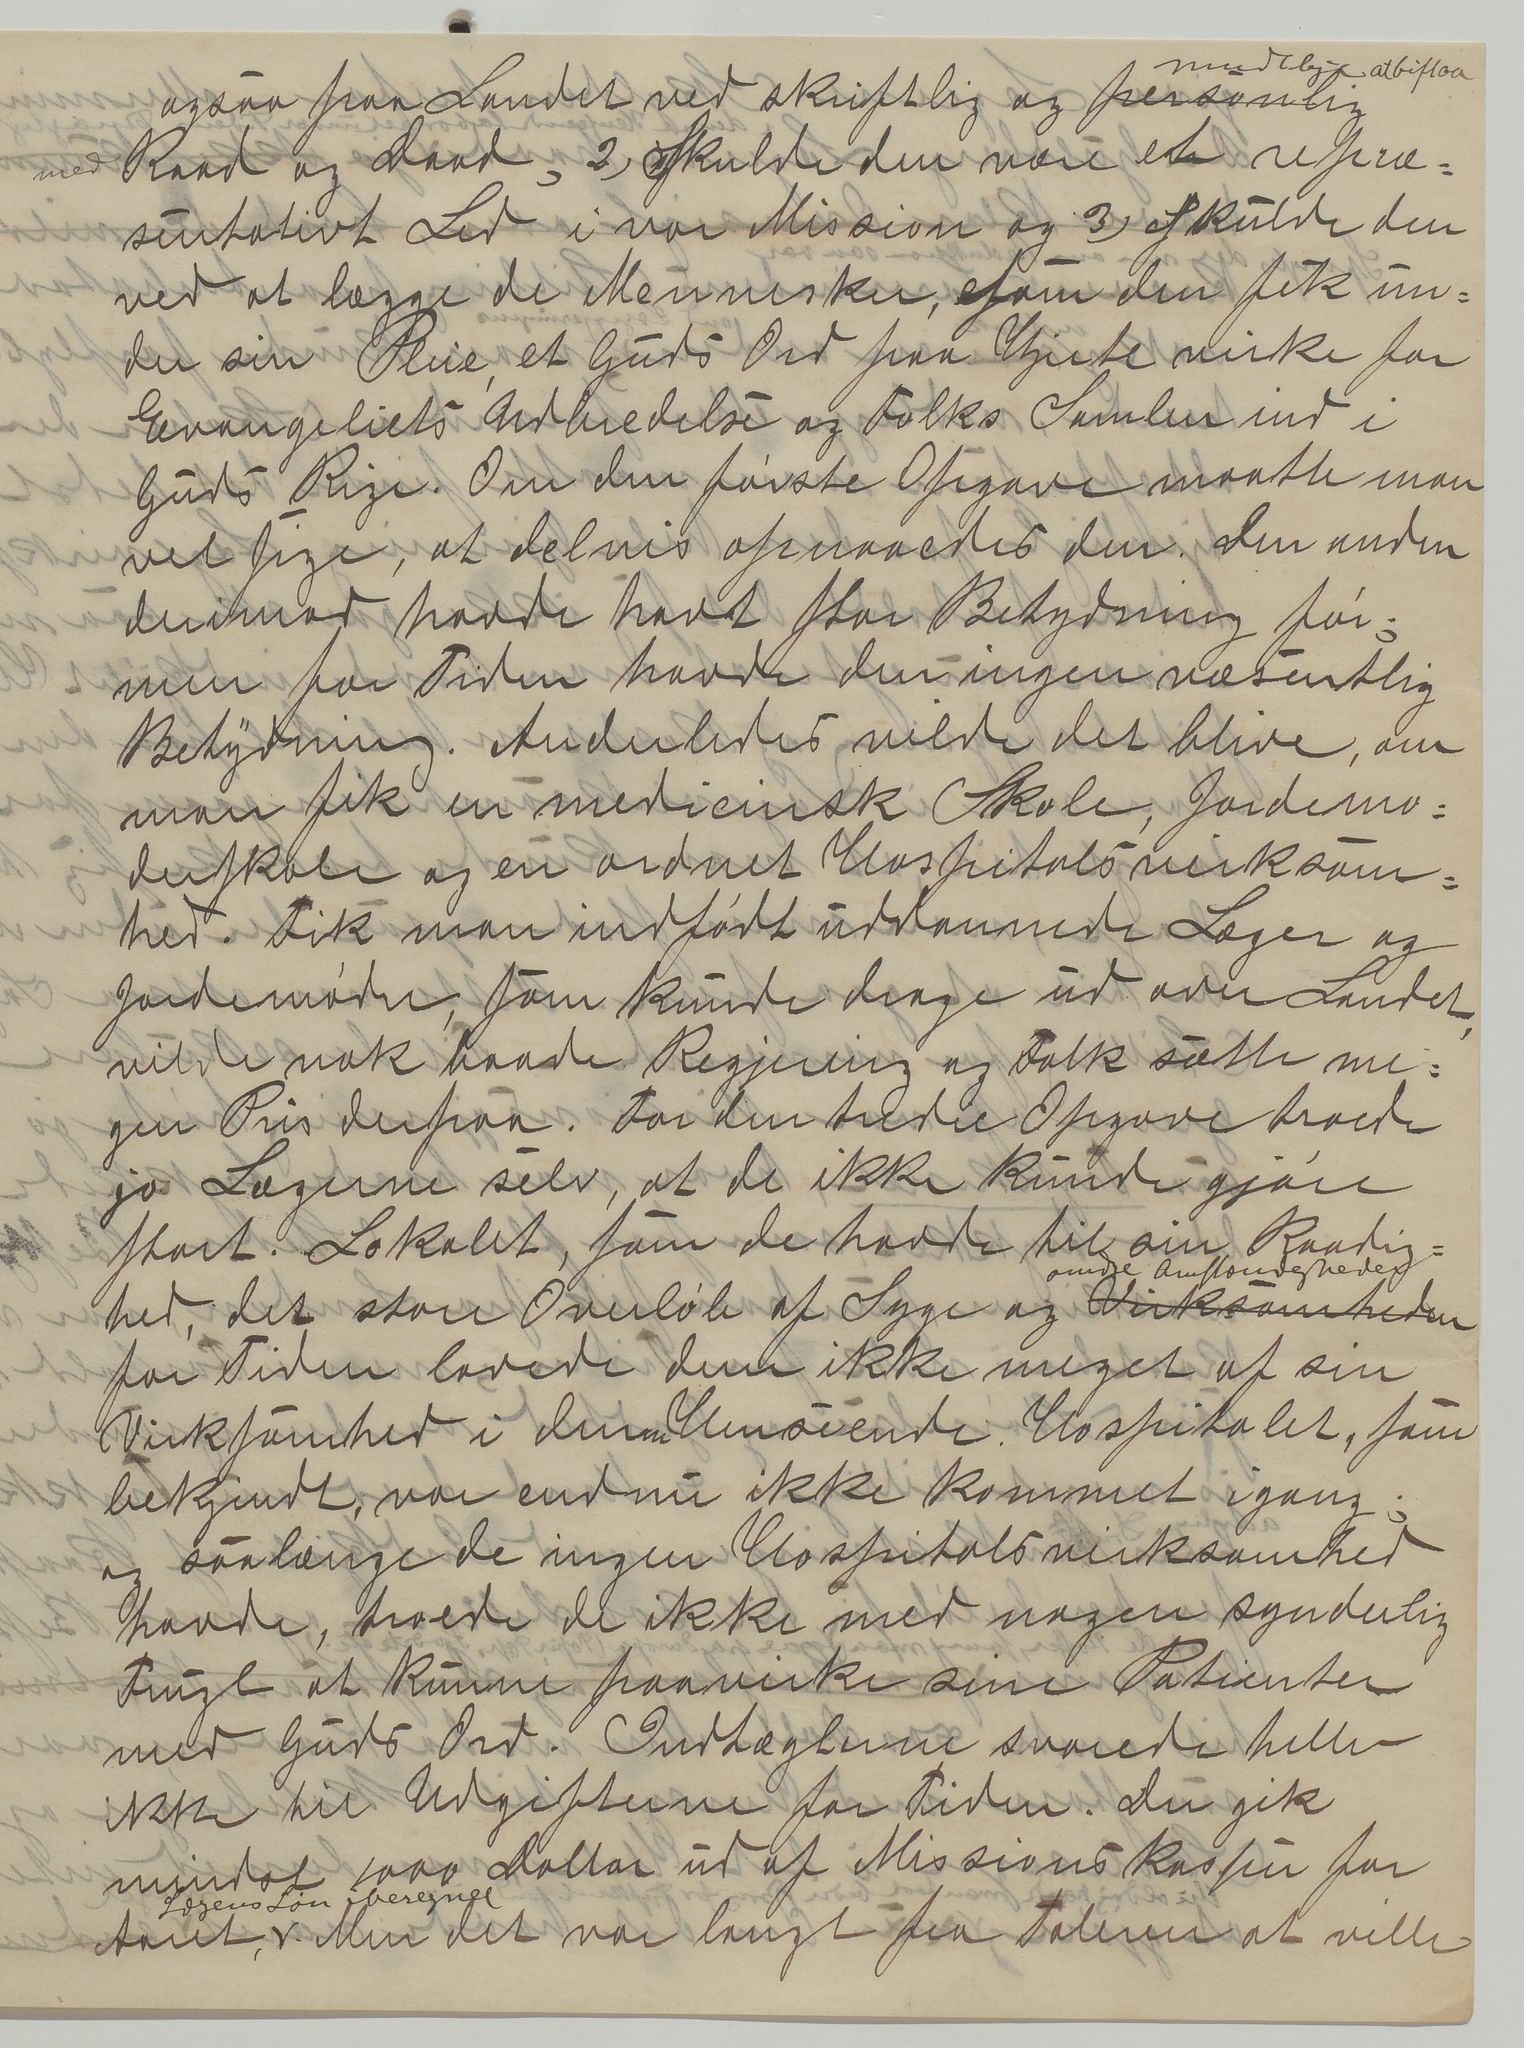 mundtligt at bistaa
ogsaa paa Landet ved skriftlig og personlig
med Raad og Daad, 2, Skulde den være et repræ=
sentativt Led i vor Mission og 3, Skulde den
ved at lægge de Mennesker, som den fik un=
der sin Pleie, et Guds Ord paa Hjerte virke for
Evangeliets Udbredelse og Folks Samlen ind i
Guds Rige. Om den første Opgave maatte man
vel sige, at delvis opnaaedes den. Den anden
derimod havde havt stor Betydning før;
men for Tiden havde den ingen væsentlig
Betydning. Anderledes vilde det blive, om
man fik en medicinsk Skole, Jordemo=
derskole og en ordnet Hospitalsvirksom=
hed. Fik man indfødt uddannede Læger og
Jordemødre, som kunde drage ud over Landet,
vilde nok baade Regjering og Folk sætte me=
gen Pris derpaa. For den tredie Opgave troede
jo Lægerne selv, at de ikke kunde gjøre
stort. Lokalet, som de havde til sin Raadig=
andre Omstændigheder
hed, det store Overløb af Syge og Virksomheden
for Tiden lovede dem ikke meget af sin
Virksomhed i den Henseende. Hospitalet, som
bekjendt, var endnu ikke kommet igang;
og saalænge de ingen Hospitalsvirksomhed
havde, troede de ikke med nogen synderlig
Frugt at kunne paavirke sine Patienter
med Guds Ord. Indtægterne svarede heller
ikke til Udgifterne for Tiden. Der gik
mindst 1000 Dollar ud af Missionskassen for
Lægens Løn iberegnet
Aaret, v. Men det var langt fra Taleren at ville